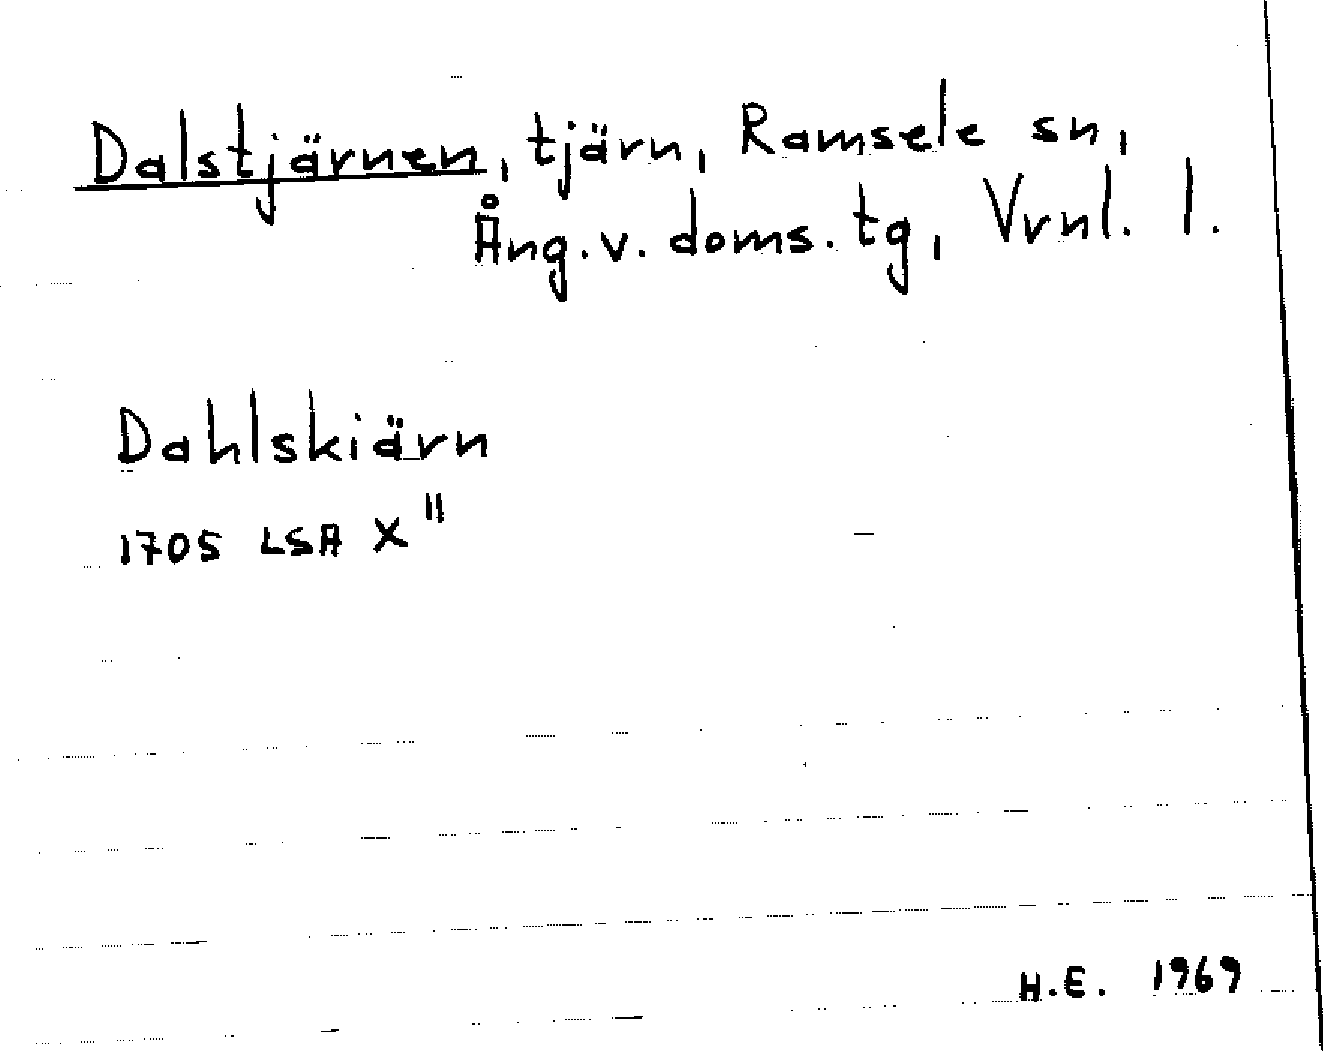 Dalstjärnen, tjärn, Ramsele sn,
Ång. v. doms. tg, Vrnl. l.
Dahlskiärn
1705 LSA X"
H.E. 1969